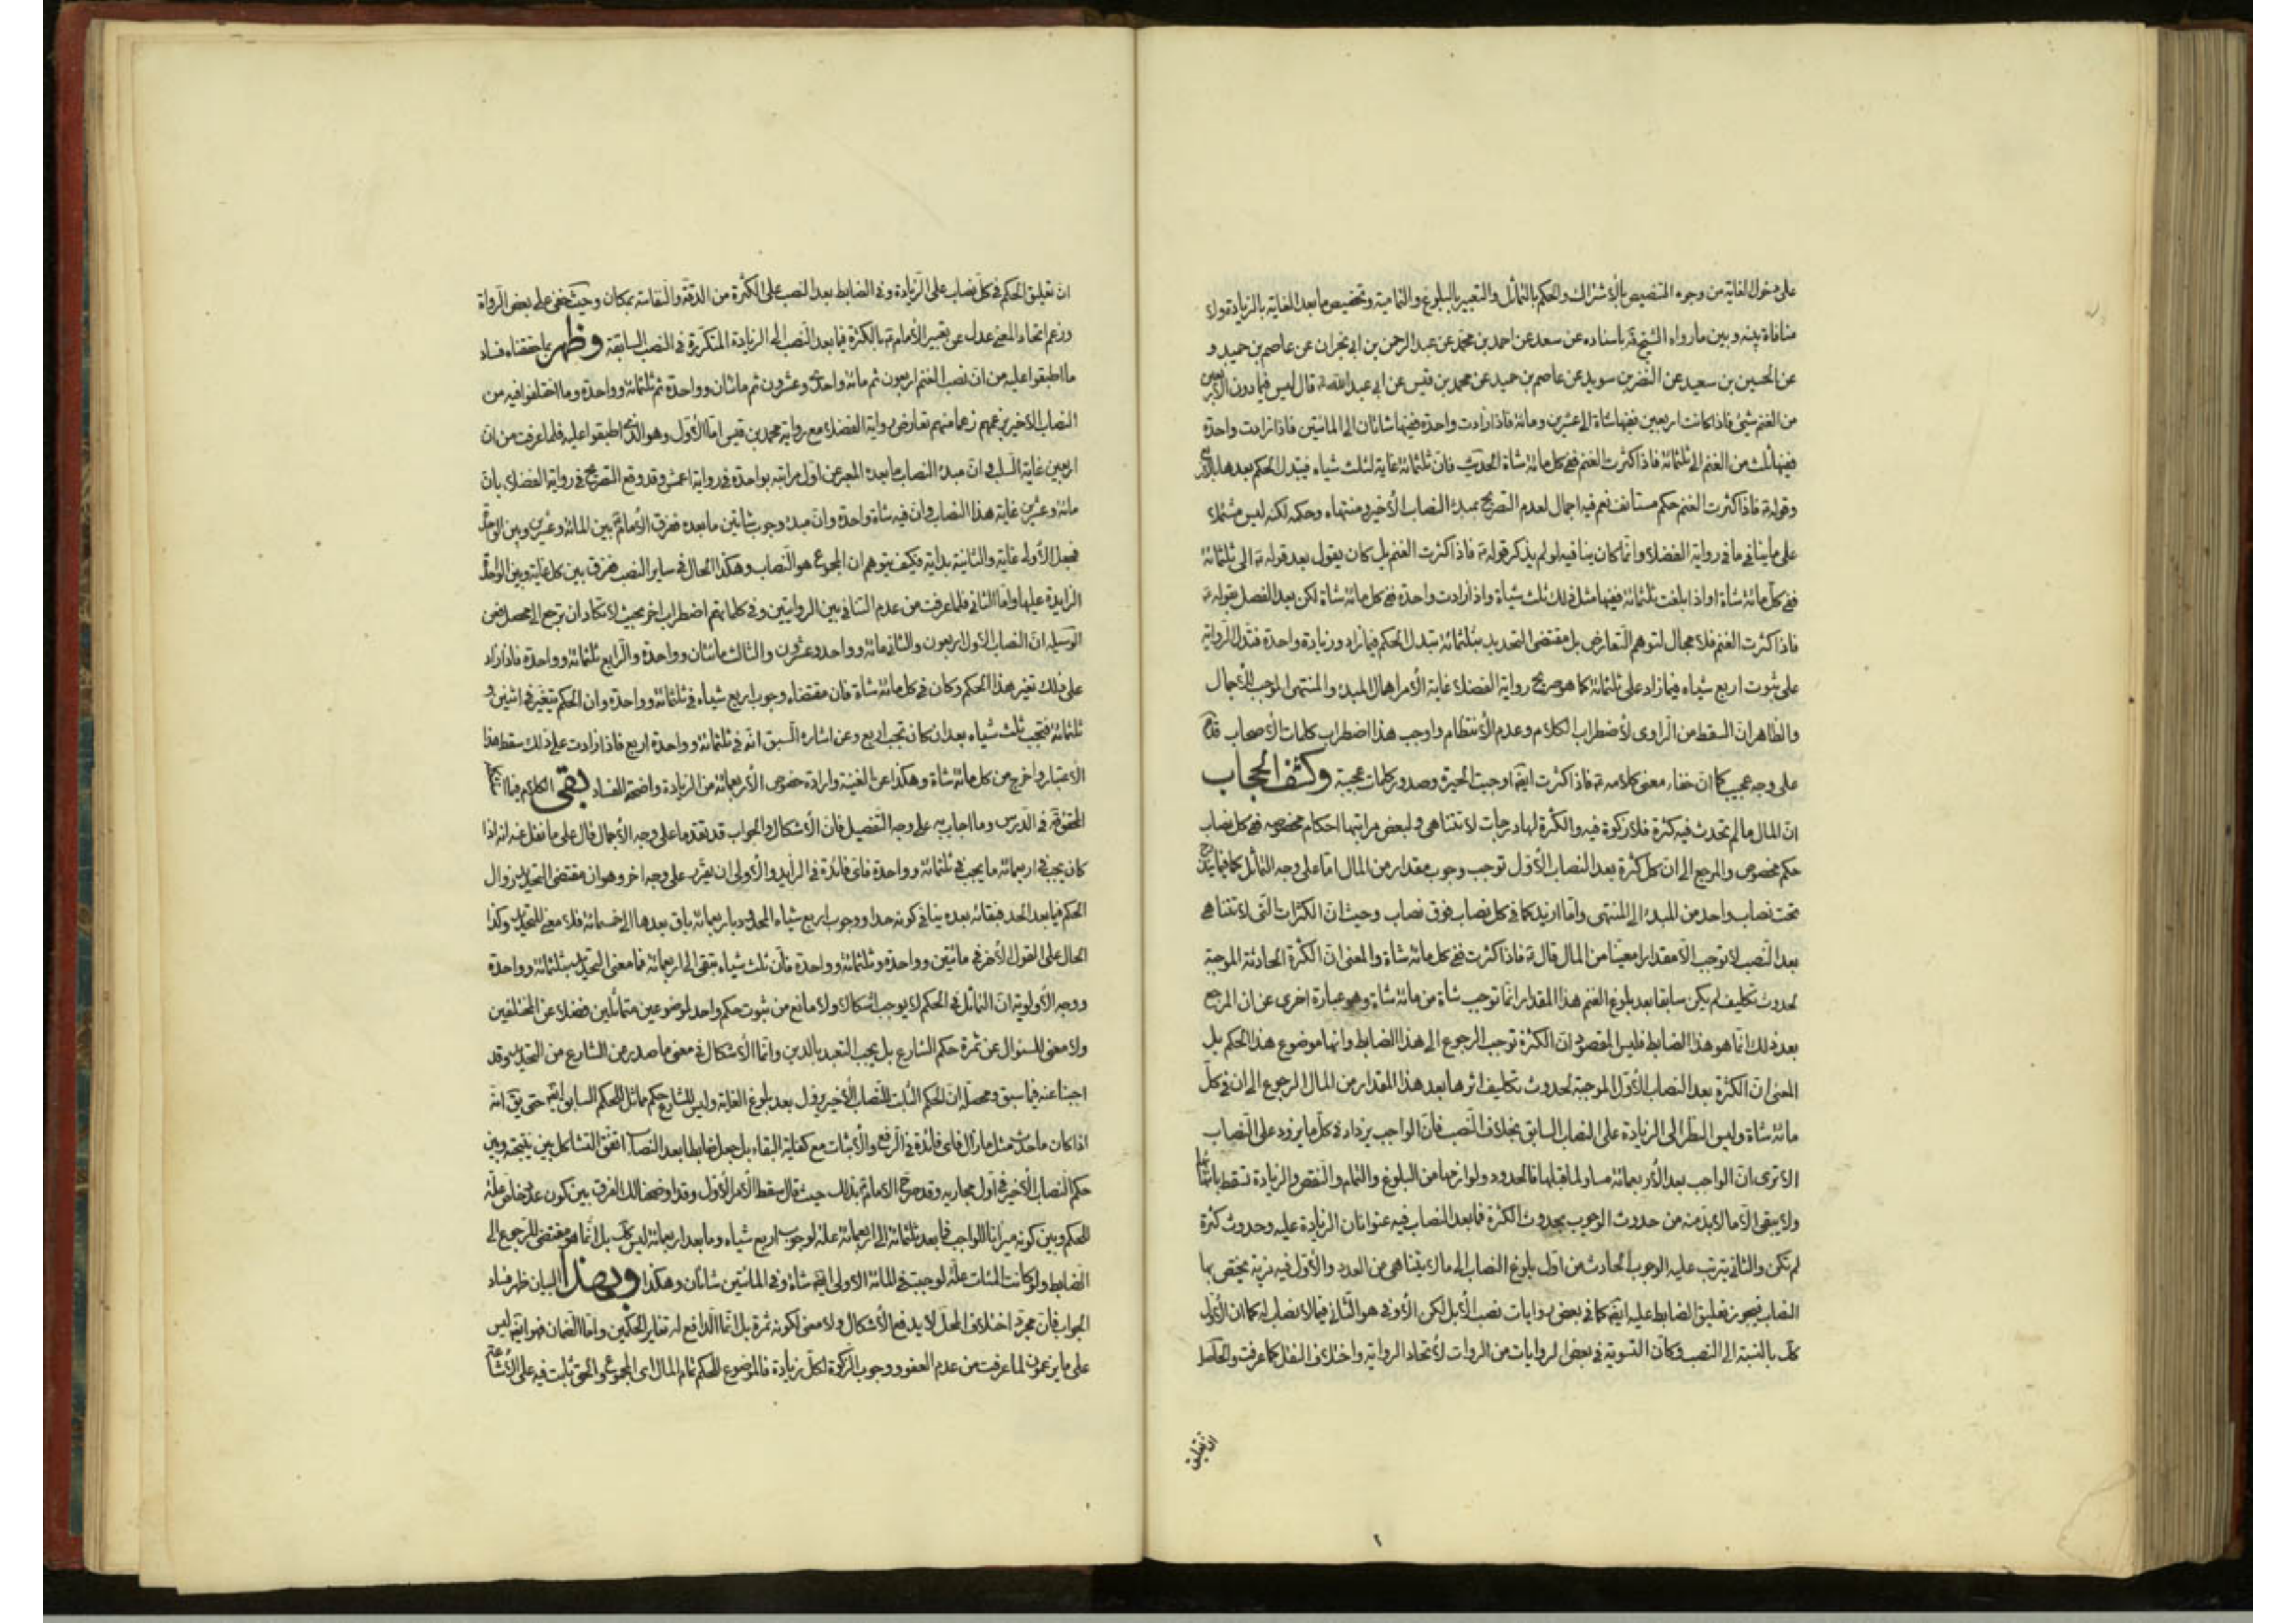 على دخول الغاية من وجوه التنصيص بالاشتراك والحكم بالتماثل والتعبير بالبلوغ والتمامية وتخصيص ما بعد الغاية بالزيادة ولا
منافاة بينه وبين ما رواه الشيخ باسناده عن سعد عن احمد بن محمد عن عبد الرحمن بن ابي نجران عن عاصم بن حميد و
عن الحسين بن سعيد عن النضر بن سويد عن عاصم بن حميد عن محمد بن قيس عن ابي عبد الله قال ليس فيما دون الاربعين
من الغنم شئ فاذا كانت اربعين ففيها شاة الى عشرين ومائة فاذا زادت واحدة ففيها شاتان الى المائتين فاذا زادت واحدة
ففيها ثلث من الغنم الى ثلثمائة فاذا كثرت الغنم ففى كل مائة شاة الحديث فان ثلثمائة غاية لثلث شياه فيتبدل الحكم بعدها
وقوله فاذا كثرت الغنم حكم مستانف نعم فيه اجمال لعدم التصريح بمبدء النصاب الاخير ومنتهاه وحكمه لكنه ليس مشتملا
على ما ينافي ما في رواية الفضلاء وانما كان ينافيه لو لم يذكر قوله فاذا كثرت الغنم بل كان يقول بعد قوله الى ثلثمائة
ففى كل مائة شاة او اذا بلغت ثلثمائة ففيها مثل ذلك ثلث شياة واذا زادت واحدة ففى كل مائة شاة لكن بعد الفصل بقوله
فاذا كثرت الغنم فلا مجال لتوهم التعارض بل مقتضى التحديد بثلثمائة تبدل الحكم فيما زاد وزيادة واحدة فتدل الرواية
على ثبوت اربع شياه فيما زاد على ثلثمائة كما هو صريح رواية الفضلاء غاية الامر اهمال المبدء والمنتهى الموجب للاجمال
والظاهر ان السقط من الراوى لاضطراب الكلام وعدم الانتظام واوجب هذا اضطراب كلمات الاصحاب
على وجه عجيب كما ان خفاء معنى كلامه فاذا كثرت ايضا اوجبت الحيرة وصدور كلمات عجيبة وكشف الحجاب
ان المال ما لم تحدث فيه كثرة فلا زكوة فيه والكثرة لها درجات لا تتناهى ولبعض مراتبها احكام مخصوصه ففى كل نصاب
حكم مخصوص والمرجع الى ان كل كثرة بعد النصاب الاول توجب وجوب مقدار من المال اما على وجه التماثل كما فيما
تحت نصاب واحد من المبدء الى المنتهى واما ازيد كما في كل نصاب فوق نصاب وحيث ان الكثرات التى لا تتناهى
بعد النصب لا توجب الا مقدارا معينا من المال قال فاذا كثرت ففى كل مائة شاة والمعنى ان الكثرة الحادثة الموجبة
لحدوث تكليف لم يكن سابقا بعد بلوغ الغنم هذا المقدار انما توجب شاة من مائة شاة وهو عبارة اخرى عن ان المرجع
بعد ذلك انما هو هذا الضابط فليس المقصود ان الكثرة توجب الرجوع الى هذا الضابط وانها موضوع هذا الحكم بل
المعنى ان الكثرة بعد النصاب الاول الموجبة لحدوث تكليف اثرها بعد هذا المقدار من المال الرجوع الى ان فى كل
مائة شاة وليس النظر الى الزيادة على النصاب السابق بخلاف النصب فان الواجب يزداد في كل ما يزود على النصاب
الا ترى ان الواجب بعد الاربعمائة مساو لما قبلها فالحدود ولوازمها من البلوغ والتمام والنقص والزيادة تسقط
ولا يبقى الا ما لا بد منه من حدوث الوجوب بحدوث الكثرة فما بعد النصاب فيه عنوانان الزيادة عليه وحدوث كثرة
لم تكن والثاني يترتب عليه الوجوب الحادث من اول بلوغ النصاب الى ما لا يتناهى من العدد والاول فيه مزية يختص بها
النصاب فيجوز تعليق الضابط عليه ايضا كما في بعض روايات نصب الابل لكن الاوفى هو الثاني فيما لا نصاب له كما ان الاول
كك بالنسبة الى النصب وكان التسوية في بعض الروايات من الروات لاتحاد الرواية واختلاف النقل كما عرفت والحاصل
ان تعليق
ان تعليق الحكم في كل نصاب على الزيادة وفي الضابط بعد النصب على الكثرة من الدقة والنفاسة بمكان وحيث خفى على بعض الرواة
وزعم اتحاد المعنى عدل عن تعبير الامام بالكثرة فيما بعد النصب الى الزيادة المتكررة في النصب السابقة وظهر بما حققناه فساد
ما اطبقوا عليه من ان نصب الغنم اربعون ثم مائة واحدى وعشرون ثم مائتان وواحدة ثم ثلثمائة وواحدة وما اختلفوا فيه من
النصاب الاخير زعما منهم تعارض رواية الفضلاء مع رواية محمد بن قيس اما الاول وهو الذى اطبقوا عليه فلما عرفت من ان
اربعين غاية السلب وان مبدء النصاب ما بعده المعبر عن اول مراتبه بواحدة في رواية اعمش وقد وقع التصريح في رواية الفضلاء بان
مائة وعشرين غاية هذا النصاب وان فيه شاة واحدة وان مبدء وجوب شاتين ما بعده ففرق الامام بين المائة وعشرين وبين الواحدة
فجعل الاولى غاية والثانية بداية فكيف يتوهم ان المجموع هو النصاب وهكذا الحال في ساير النصب ففرق بين كل غاية وبين الواحدة
الزايدة عليها واما الثاني فلما عرفت من عدم التنافي بين الروايتين وفي كلماتهم اضطراب اخر بحيث لا تكاد ان ترجع الى محصل فعن
الوسيلة ان النصاب الاول اربعون والثاني مائة وواحد وعشرون والثالث مائتان وواحدة والرابع ثلثمائة وواحدة فاذا زاد
على ذلك تغير هذا الحكم وكان في كل مائة شاة فان مقتضاه وجوب اربع شياه في ثلثمائة وواحدة وان الحكم يتغير في اثنين و
ثلثمائة فتجب ثلث شياه بعد ان كان تجب اربع وعن اشارة السبق انه في ثلثمائة وواحدة اربع فاذا زادت على ذلك سقط هذا
الاعتبار واخرج من كل مائة شاة وهكذا عن الغنية وارادة خصوص الاربعمائة من الزيادة واضحة الفساد بقى الكلام فيما
المحقق في الدرس وما اجاب به على وجه التفصيل فان الاشكال والجواب قد تقدما على وجه الاجمال قال على ما نقل عنه انه اذا
كان يجب في اربعمائة ما يجب في ثلثمائة وواحدة فاى فائدة في الزايد والاولى ان يقرر على وجه اخر وهو ان مقتضى التحديد زوال
الحكم فيما بعد الحد فبقائه بعده ينافي كونه حدا ووجوب اربع شياه المحدود باربعمائة باق بعدها الى خمسمائة فلا معنى للتحديد وكذا
الحال على القول الاخر في مائتين وواحدة وثلثمائة وواحدة فان ثلث شياه تبقى الى اربعمائة فما معنى التحديد بثلثمائة وواحدة
ووجه الاولوية ان التماثل في الحكم لا يوجب اشكالا ولا مانع من ثبوت حكم واحد لموضوعين متماثلين فضلا عن المختلفين
ولا معنى للسئوال عن ثمرة حكم الشارع بل يجب التعبد بالدين وانما الاشكال في معنى ما صدر من الشارع من التحديد وقد
اجبنا عنه فيما سبق ومحصله ان الحكم الثابت للنصاب الاخير يزول بعد بلوغ الغاية وليس للشارع حكم مماثل للحكم السابق ايضا حتى يق انه
اذا كان ما حدث مثل ما زال فاى فائدة في الرفع والاثبات مع كفاية البقاء بل جعل ضابطا بعد النصاب اتفق التشاكل بين نتيجته وبين
حكم النصاب الاخير في اول مجاريه وقد صرح الامام بذلك حيث قال سقط الامر الاول وقد اوضحنا لك الفرق بين كون عدد خاص علة
للحكم وبين كونه ميزانا للواجب فما بعد ثلثمائة الى اربعمائة علة لوجوب اربع شياه وما بعد اربعمائة ليس كك بل انما هو مقتضى للرجوع الى
الضابط ولو كانت المئات علة لوجبت في المائة الاولى ايضا شاة وفي المائتين شاتان وهكذا وبهذا البيان ظهر فساد
الجواب فان مجرد اختلاف المحل لا يدفع الاشكال ولا معنى لكونه ثمرة بل انما الدافع له تغاير الحكمين واما الضمان فهو ايضا ليس
على ما يزعمون لما عرفت من عدم العفو ووجوب الزكوة لكل زيادة فالموضوع للحكم تمام المال اى المجموع والحق ثابت فيه على الاشاعة